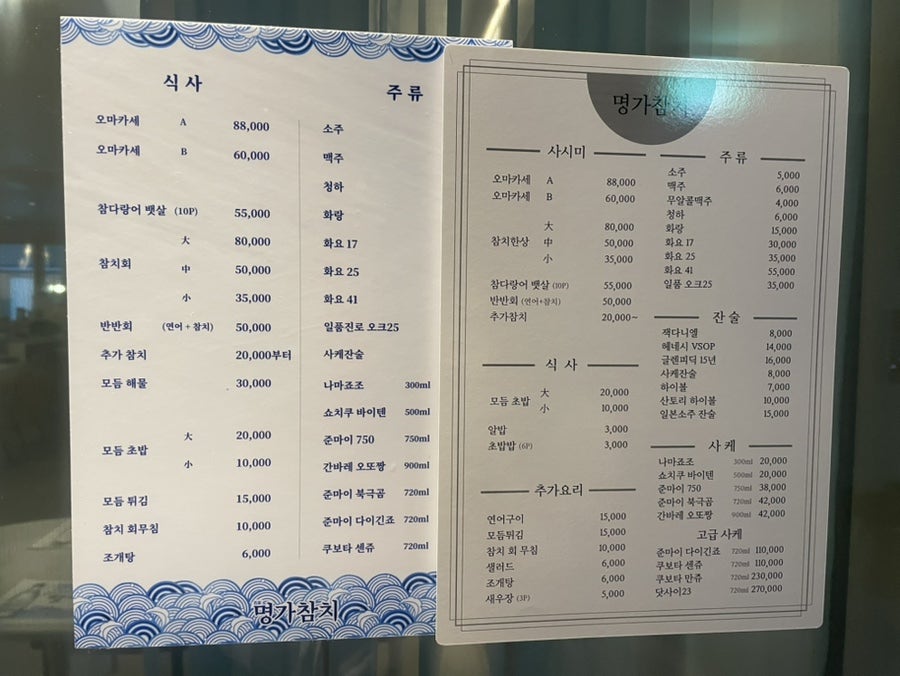 식사
오마카세 A 88,000
오마카세 B 60,000
참다랑어 뱃살 (10P) 55,000
大 80,000
참치회 中 50,000
小 35,000
반반회 (연어 + 참치) 50,000
추가 참치 20,000부터
모듬 해물 30,000
大 20,000
모듬 초밥
小 10,000
모듬 튀김 15,000
참치 회무침 10,000
조개탕 6,000
주류
소주
맥주
청하
화랑
화요 17
화요 25
화요 41
일품진로 오크25
사케잔술
나마죠조 300ml
쇼치쿠 바이텐 500ml
준마이 750 750ml
간바레 오또짱 900ml
준마이 북극곰 720ml
준마이 다이긴죠 720ml
쿠보타 센쥬 720ml
명가참치
명가참치
사시미
오마카세 A 88,000
오마카세 B 60,000
大 80,000
참치한상 中 50,000
小 35,000
참다랑어 뱃살 (10P) 55,000
반반회 (연어+참치) 50,000
추가참치 20,000~
식사
모듬 초밥 大 20,000
小 10,000
알밥 3,000
초밥밥 (6P) 3,000
추가요리
연어구이 15,000
모듬튀김 15,000
참치 회 무침 10,000
샐러드 6,000
조개탕 6,000
새우장 (3P) 5,000
주류
소주 5,000
맥주 6,000
무알콜맥주 4,000
청하 6,000
화랑 15,000
화요 17 30,000
화요 25 35,000
화요 41 55,000
일품 오크25 35,000
잔술
잭다니엘 8,000
헤네시 VSOP 14,000
글렌피딕 15년 16,000
사케잔술 8,000
하이볼 7,000
산토리 하이볼 10,000
일본소주 잔술 15,000
사케
나마죠조 300ml 20,000
쇼치쿠 바이텐 500ml 20,000
준마이 750 750ml 38,000
준마이 북극곰 720ml 42,000
간바레 오또짱 900ml 42,000
고급 사케
준마이 다이긴죠 720ml 110,000
쿠보타 센쥬 720ml 110,000
쿠보타 만쥬 720ml 230,000
닷사이23 720ml 270,000